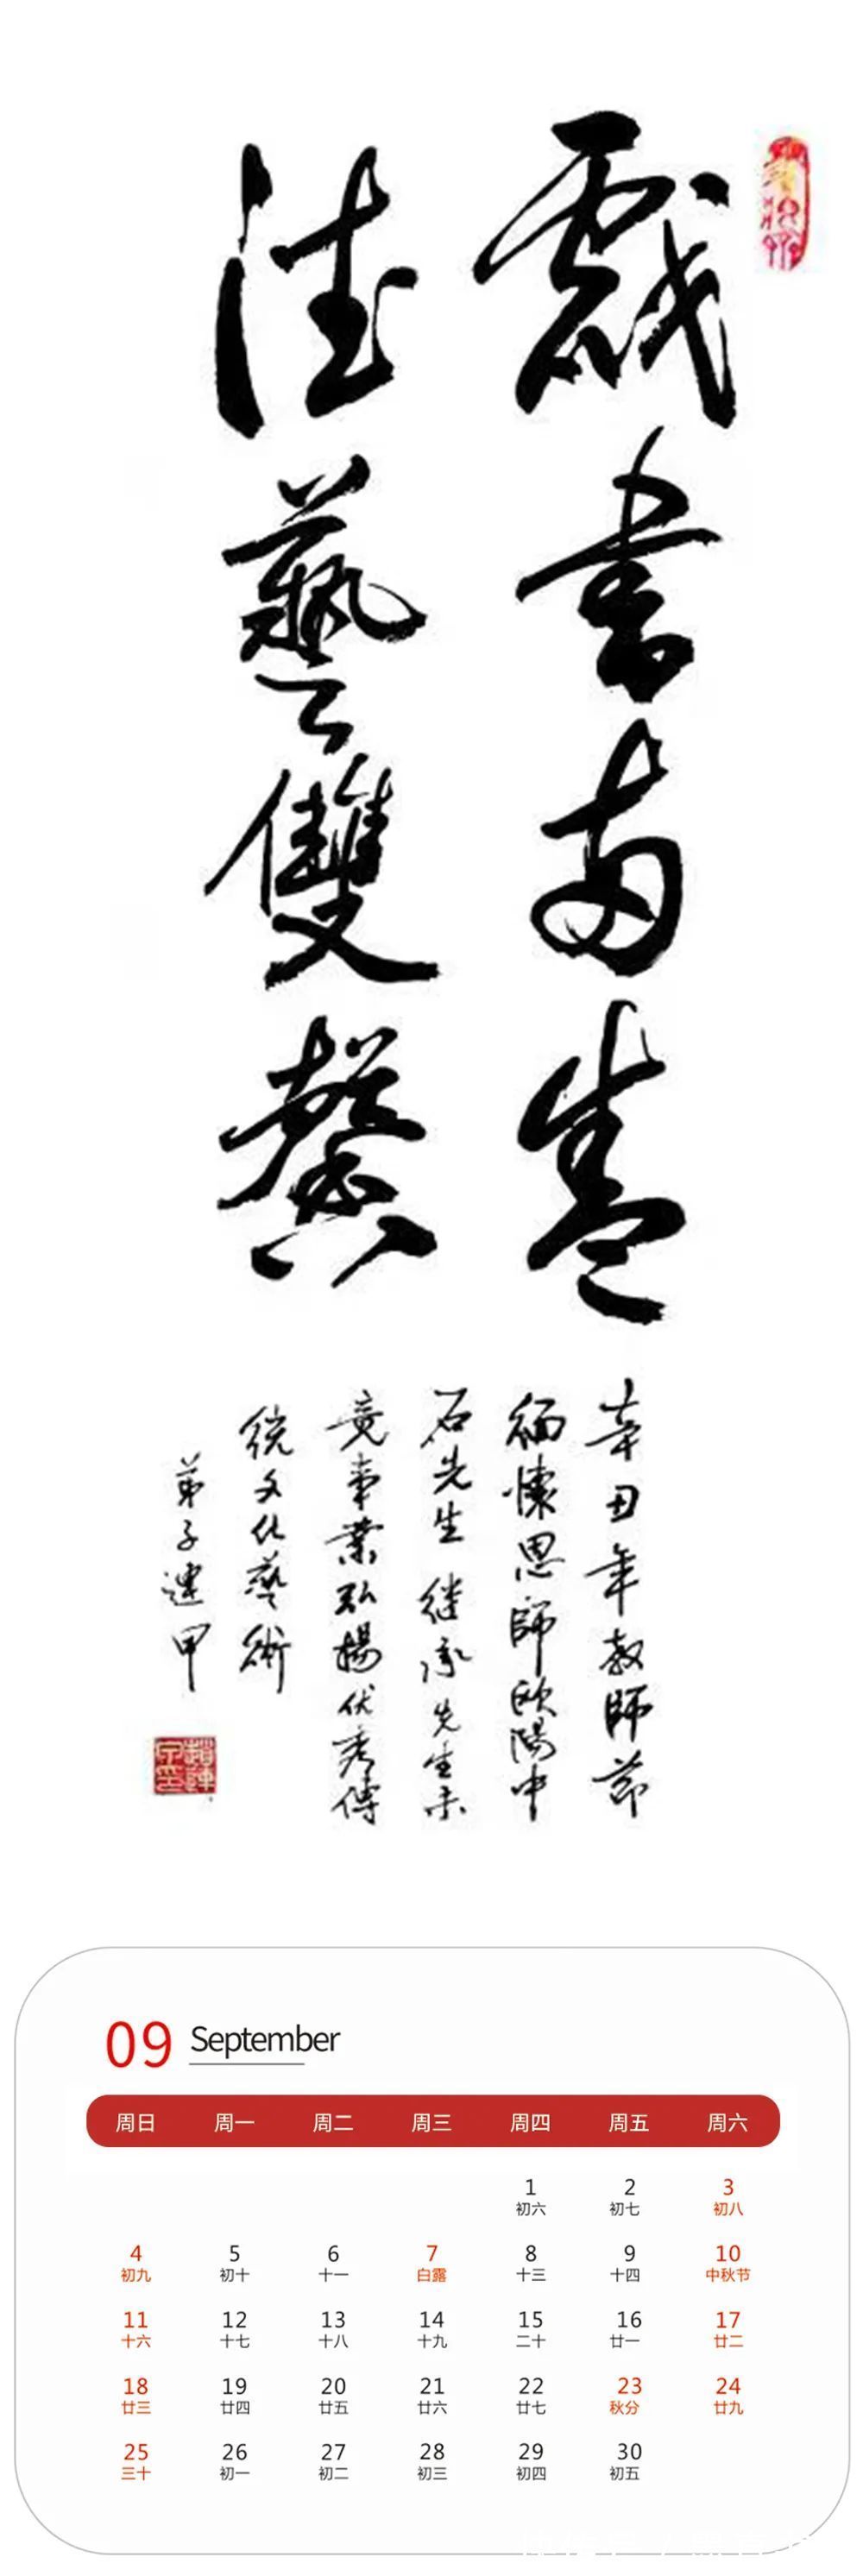 戲書兩盛
德藝雙馨
辛丑年教師節
緬懷恩師歐陽中
石先生 继承先生未
竟事業弘揚优秀傳
统文化藝術
弟子連甲
09 September
周日 周一 周二 周三 周四 周五 周六
1 2 3
初六 初七 初八
4 5 6 7 8 9 10
初九 初十 十一 白露 十三 十四 中秋节
11 12 13 14 15 16 17
十六 十七 十八 十九 二十 廿一 廿二
18 19 20 21 22 23 24
廿三 廿四 廿五 廿六 廿七 秋分 廿九
25 26 27 28 29 30
三十 初一 初二 初三 初四 初五